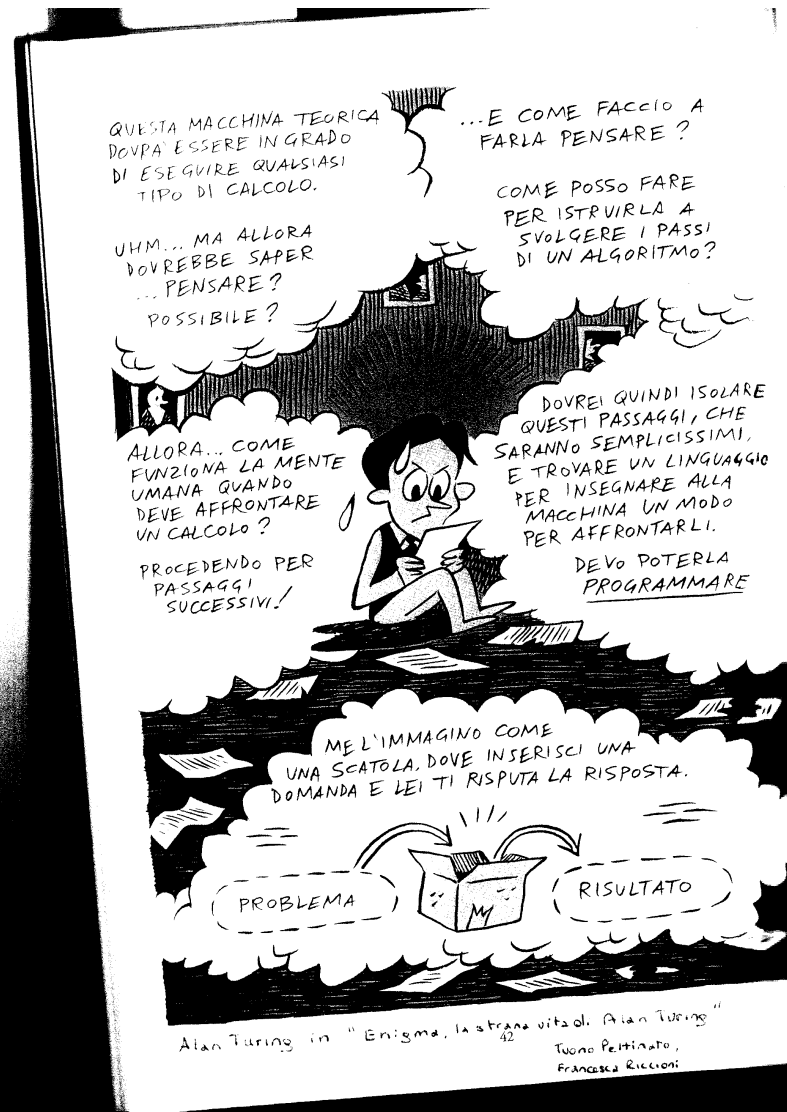 QUESTA MACCHINA TEORICA
DOVRÀ ESSERE IN GRADO
DI ESEGUIRE QUALSIASI
TIPO DI CALCOLO.
UHM... MA ALLORA
DOVREBBE SAPER
...PENSARE?
POSSIBILE?
...E COME FACCIO A
FARLA PENSARE?
COME POSSO FARE
PER ISTRUIRLA A
SVOLGERE I PASSI
DI UN ALGORITMO?
ALLORA... COME
FUNZIONA LA MENTE
UMANA QUANDO
DEVE AFFRONTARE
UN CALCOLO?
PROCEDENDO PER
PASSAGGI
SUCCESSIVI!
DOVREI QUINDI ISOLARE
QUESTI PASSAGGI, CHE
SARANNO SEMPLICISSIMI,
E TROVARE UN LINGUAGGIO
PER INSEGNARE ALLA
MACCHINA UN MODO
PER AFFRONTARLI.
DEVO POTERLA
PROGRAMMARE
ME L'IMMAGINO COME
UNA SCATOLA, DOVE INSERISCI UNA
DOMANDA E LEI TI RISPUTA LA RISPOSTA.
PROBLEMA
RISULTATO
Alan Turing in "Enigma, la strana vita di Alan Turing"
42
Tuono Pettinato,
Francesca Riccioni